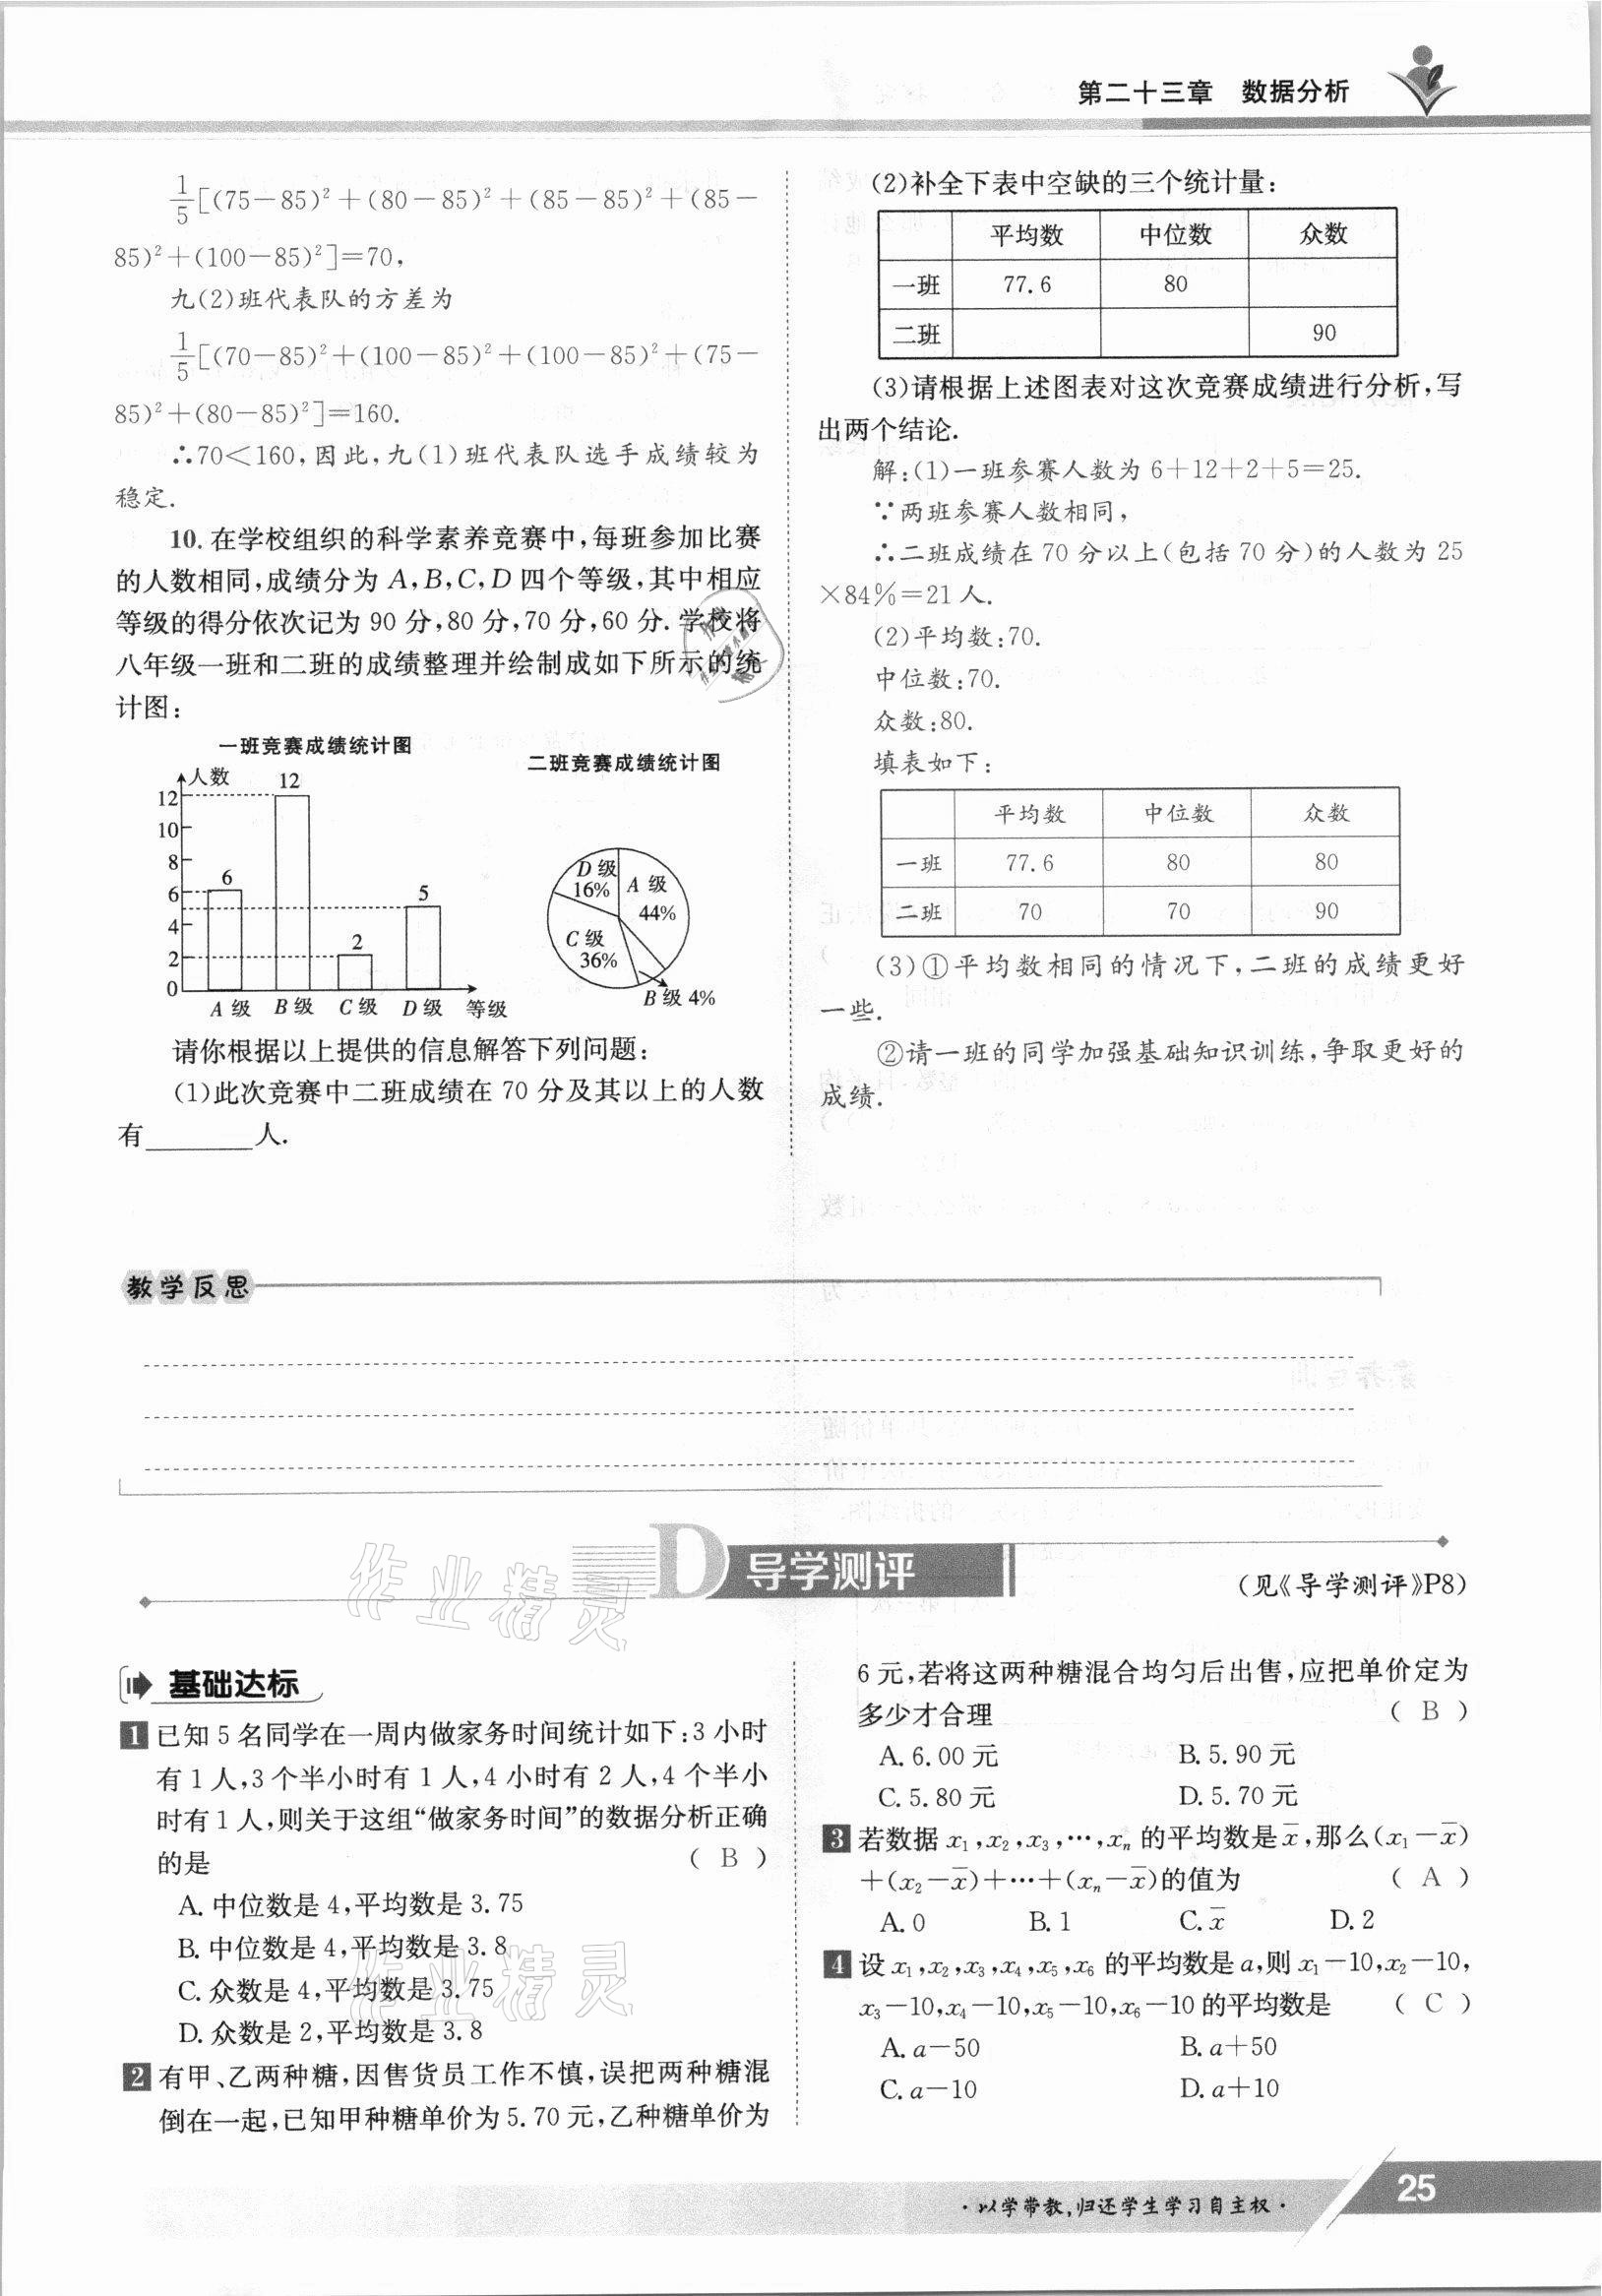 第二十三章 数据分析
1/5[(75－85)²＋(80－85)²＋(85－85)²＋(85－
85)²＋(100－85)²]＝70,
九(2)班代表队的方差为
1/5[(70－85)²＋(100－85)²＋(100－85)²＋(75－
85)²＋(80－85)²]＝160.
∴70＜160,因此,九(1)班代表队选手成绩较为
稳定.
10. 在学校组织的科学素养竞赛中,每班参加比赛
的人数相同,成绩分为 A,B,C,D 四个等级,其中相应
等级的得分依次记为 90 分,80 分,70 分,60 分. 学校将
八年级一班和二班的成绩整理并绘制成如下所示的统
计图:
一班竞赛成绩统计图
人数
12
10
8
6
4
2
0
6
12
2
5
A 级 B 级 C 级 D 级 等级
二班竞赛成绩统计图
D 级
16%
A 级
44%
C 级
36%
B 级 4%
请你根据以上提供的信息解答下列问题:
(1)此次竞赛中二班成绩在 70 分及其以上的人数
有________人.
(2)补全下表中空缺的三个统计量:
平均数 中位数 众数
一班 77.6 80
二班 90
(3)请根据上述图表对这次竞赛成绩进行分析,写
出两个结论.
解:(1)一班参赛人数为 6＋12＋2＋5＝25.
∵两班参赛人数相同,
∴二班成绩在 70 分以上(包括 70 分)的人数为 25
×84%＝21 人.
(2)平均数:70.
中位数:70.
众数:80.
填表如下:
平均数 中位数 众数
一班 77.6 80 80
二班 70 70 90
(3)①平均数相同的情况下,二班的成绩更好
一些.
②请一班的同学加强基础知识训练,争取更好的
成绩.
教学反思
D 导学测评
(见《导学测评》P8)
基础达标
1 已知 5 名同学在一周内做家务时间统计如下:3 小时
有 1 人,3 个半小时有 1 人,4 小时有 2 人,4 个半小
时有 1 人,则关于这组“做家务时间”的数据分析正确
的是 ( B )
A. 中位数是 4,平均数是 3.75
B. 中位数是 4,平均数是 3.8
C. 众数是 4,平均数是 3.75
D. 众数是 2,平均数是 3.8
2 有甲、乙两种糖,因售货员工作不慎,误把两种糖混
倒在一起,已知甲种糖单价为 5.70 元,乙种糖单价为
6 元,若将这两种糖混合均匀后出售,应把单价定为
多少才合理 ( B )
A. 6.00 元 B. 5.90 元
C. 5.80 元 D. 5.70 元
3 若数据 x₁,x₂,x₃,…,xₙ 的平均数是x̄,那么(x₁－x̄)
＋(x₂－x̄)＋…＋(xₙ－x̄)的值为 ( A )
A. 0 B. 1 C. x̄ D. 2
4 设 x₁,x₂,x₃,x₄,x₅,x₆ 的平均数是 a,则 x₁－10,x₂－10,
x₃－10,x₄－10,x₅－10,x₆－10 的平均数是 ( C )
A. a－50 B. a＋50
C. a－10 D. a＋10
作业精灵
作业精灵
·以学带教,归还学生学习自主权·
25